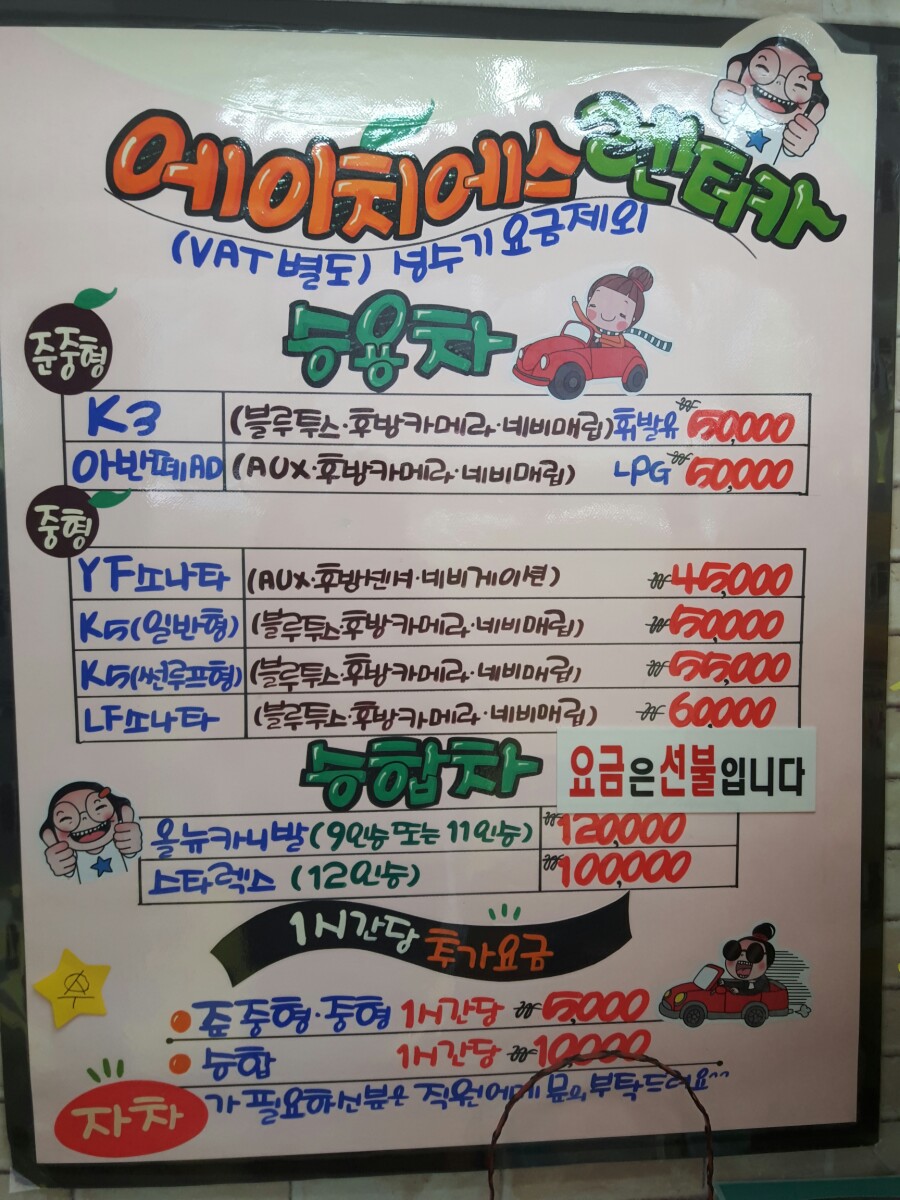 에이치에스 렌터카
(VAT 별도) 성수기 요금제외
승용차
준중형
K3 (블루투스·후방카메라·네비매립) 휘발유 ₩50,000
아반떼AD (AUX·후방카메라·네비매립) LPG ₩50,000
중형
YF소나타 (AUX·후방센서·네비게이션) ₩45,000
K5(일반형) (블루투스·후방카메라·네비매립) ₩50,000
K5(썬루프형) (블루투스·후방카메라·네비매립) ₩55,000
LF소나타 (블루투스·후방카메라·네비매립) ₩60,000
승합차
요금은 선불입니다
올뉴카니발 (9인승 또는 11인승) ₩120,000
스타렉스 (12인승) ₩100,000
1시간당 추가요금
준중형·중형 1시간당 ₩5,000
승합 1시간당 ₩10,000
자차가 필요하신분은 직원에게 문의 부탁드려요^^